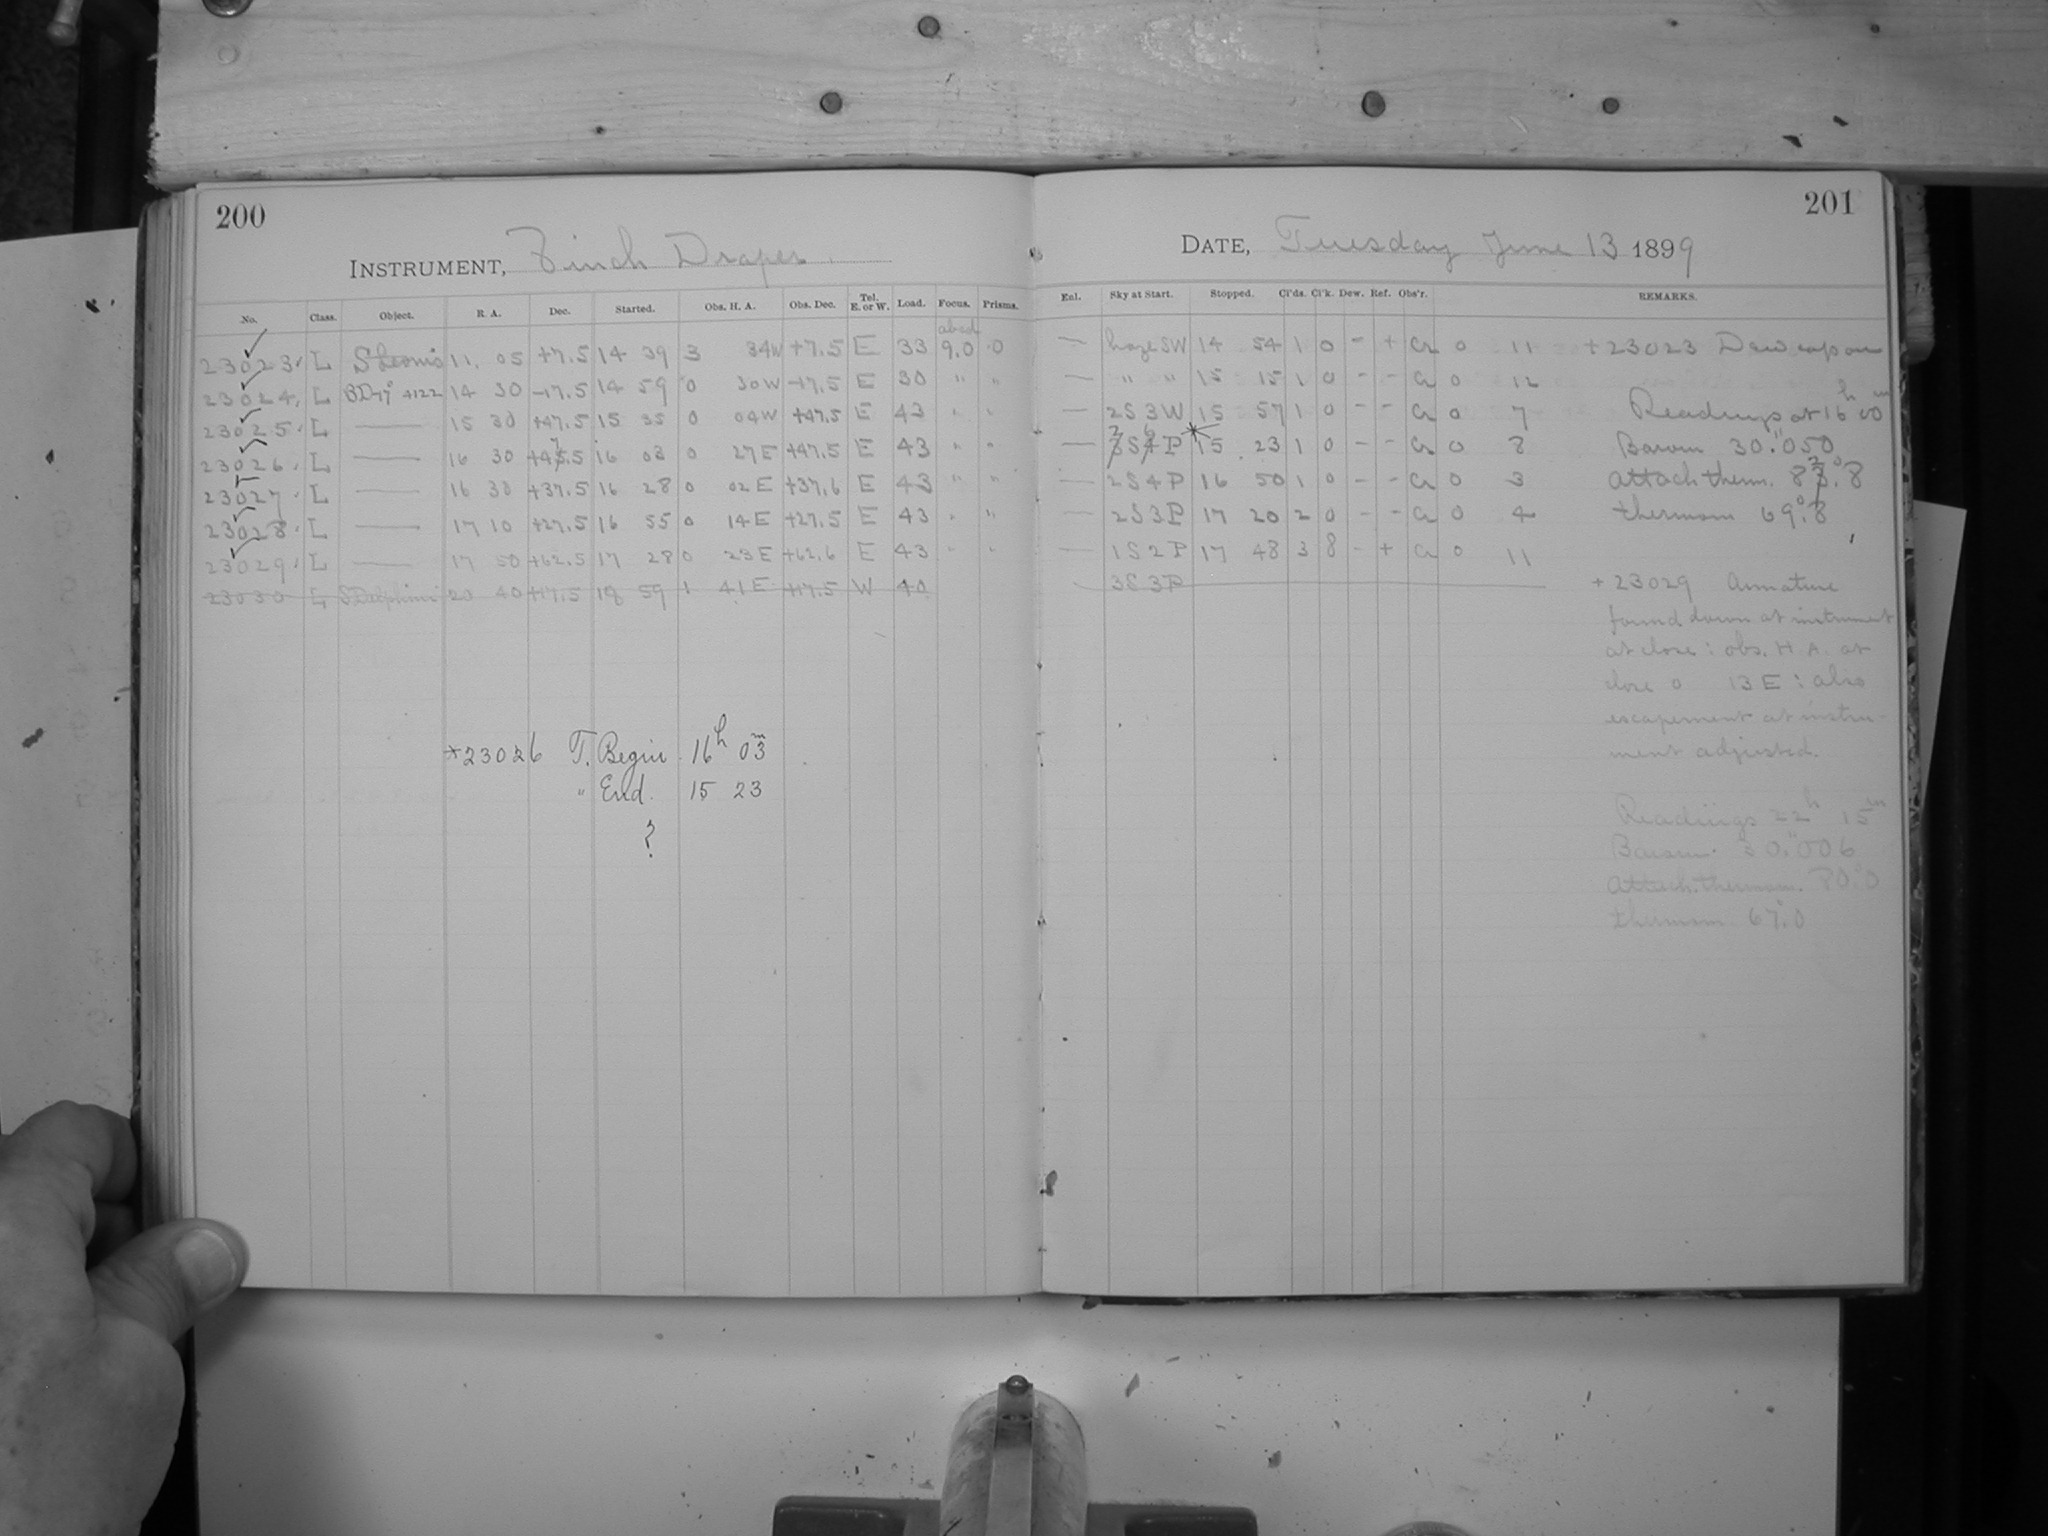 200
INSTRUMENT, 8 inch Draper
No. Class. Object. R. A. Dec. Started. Obs. H. A. Obs. Dec. Tel. E. or W. Load. Focus. Prisms.
abcd
23023 L S Leonis 11 05 +7.5 14 39 3 34W +7.5 E 33 9.0 0
23024 L 14 30 -17.5 14 59 0 30W -17.5 E 30 " "
23025 L — 15 30 +47.5 15 35 0 04W +47.5 E 43 " "
23026 L — 16 30 +47.5 16 03 0 27E +47.5 E 43 " "
23027 L — 16 30 +37.5 16 28 0 02E +37.6 E 43 " "
23028 L — 17 10 +27.5 16 55 0 14E +27.5 E 43 " "
23029 L — 17 50 +62.5 17 28 0 23E +62.6 E 43 " "
23030 L S Delphini 20 40 +17.5 18 59 1 41E +17.5 W 40
*23026 T. Begin 16h 03m
" End. 15 23
?
201
DATE, Tuesday June 13 1899
Enl. Sky at Start. Stopped. Cl'ds. Cl'k. Dew. Ref. Obs'r. REMARKS.
— haze SW 14 54 1 0 - + Cr 0 11 +23023 Dew cap on
— " " 15 15 1 0 - - Cr 0 12
— 2S 3W 15 57 1 0 - - Cr 0 7 Readings at 16h 00m
— 15 23 1 0 - - Cr 0 8 Barom 30".050
— 2S4P 16 50 1 0 - - Cr 0 3 Attach therm. 82°.8
— 2S3P 17 20 2 0 - - Cr 0 4 thermom 69°.8
— 1S2P 17 48 3 8 - + Cr 0 11
3S3P
+23029 Armature
found down at instrument
at close: obs. H. A. at
close 0 13E: also
escapement at instru-
ment adjusted.
Readings 22h 15m
Barom. 30".006
Attach. thermom. 80°.0
thermom 67°.0